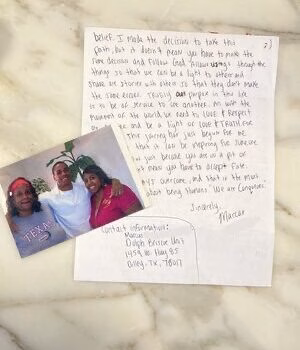 belief. I made the decision to take this
path, but it doesn't mean you have to make the
same decision and follow God allow using through the
things so that we can be a light to others and
share are stories with others so that they don't make
the same decision. our purpose in this life
is to be of service to one another. As with the
of the world we need to love & Respect
and be a light of love & Faith for
This journey has just begun for me.
that it can be inspiring for someone
just because you are in a pit or
mean you have to accept Fate.
overcome, and that is the most
about being Humans. We are Conquerors.
Sincerely,
Marcus
Contact information:
Marcus
Dolph Briscoe Unit
1459 W. Hwy 85
Dilley, TX, 78017
TEXAS